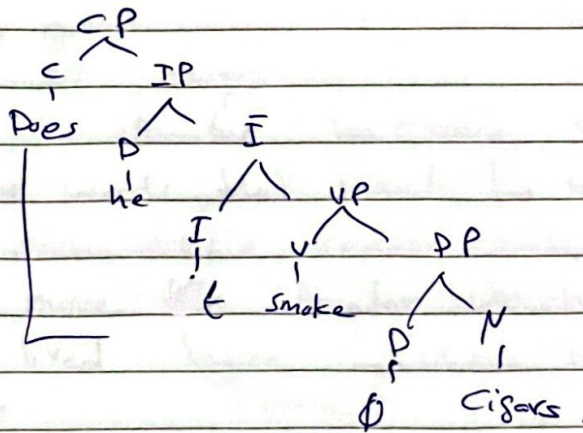 CP
C IP
Does D Ī
he I VP
t V DP
smoke D N
φ Cigars